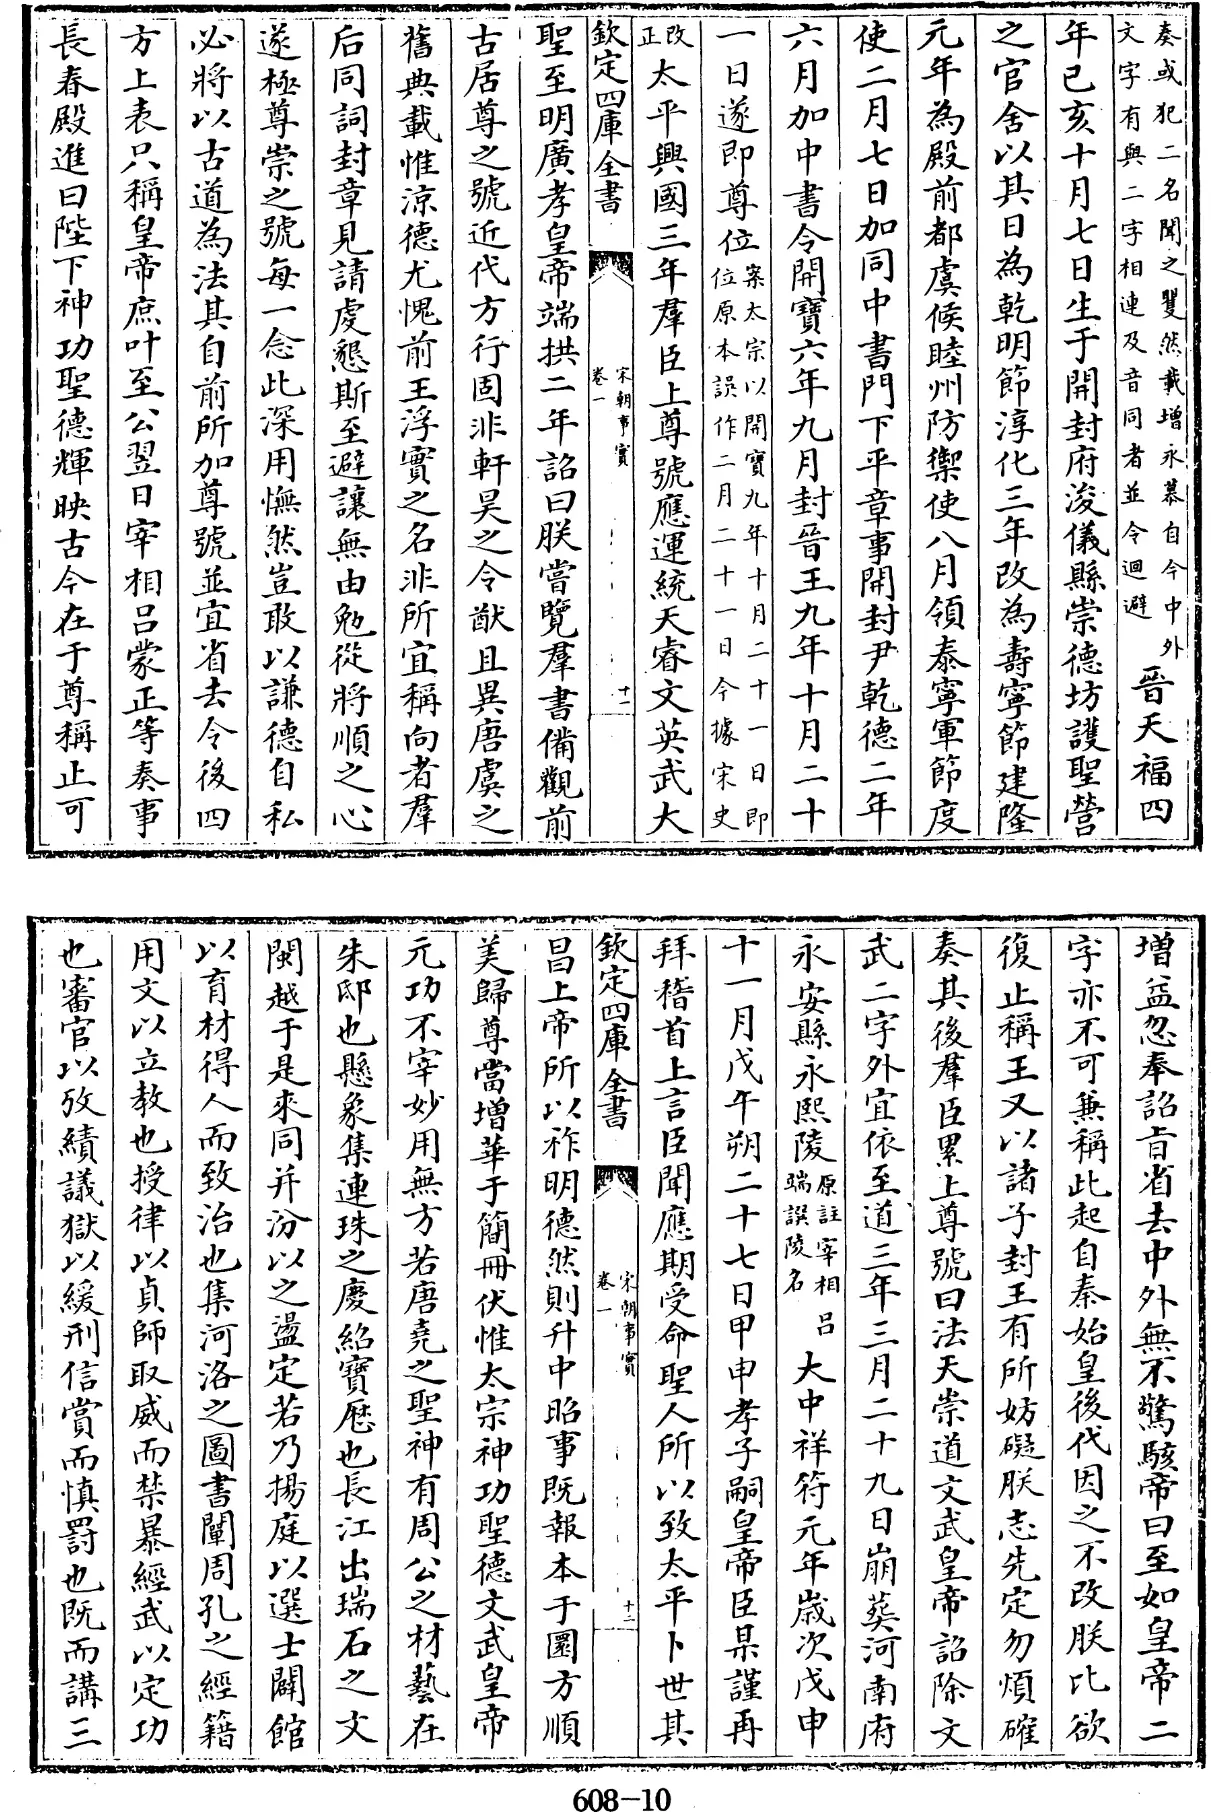 奏或犯二名聞之矍然載增永慕自今中外
文字有與二字相連及音同者並令迴避
晉天福四
年己亥十月七日生于開封府浚儀縣崇德坊護聖營
之官舍以其日為乾明節淳化三年改為壽寧節建隆
元年為殿前都虞候睦州防禦使八月領泰寧軍節度
使二月七日加同中書門下平章事開封尹乾德二年
六月加中書令開寶六年九月封晉王九年十月二十
一日遂即尊位
案太宗以開寶九年十月二十一日即
位原本誤作二月二十一日今據宋史
改
正
太平興國三年羣臣上尊號應運統天睿文英武大
欽定四庫全書
宋朝事實
卷一
十一
聖至明廣孝皇帝端拱二年詔曰朕嘗覽羣書備觀前
古居尊之號近代方行固非軒昊之令猷且異唐虞之
舊典載惟涼德尤愧前王浮實之名非所宜稱向者羣
后同詞封章見請虔懇斯至避讓無由勉從將順之心
遂極尊崇之號每一念此深用憮然豈敢以謙德自私
必將以古道為法其自前所加尊號並宜省去令後四
方上表只稱皇帝庶叶至公翌日宰相呂蒙正等奏事
長春殿進曰陛下神功聖德輝映古今在于尊稱止可
增益忽奉詔旨省去中外無不驚駭帝曰至如皇帝二
字亦不可兼稱此起自秦始皇後代因之不改朕比欲
復止稱王又以諸子封王有所妨礙朕志先定勿煩確
奏其後羣臣累上尊號曰法天崇道文武皇帝詔除文
武二字外宜依至道三年三月二十九日崩葬河南府
永安縣永熙陵
原註宰相呂
端譔陵名
大中祥符元年歲次戊申
十一月戊午朔二十七日甲申孝子嗣皇帝臣某謹再
拜稽首上言臣聞應期受命聖人所以致太平卜世其
欽定四庫全書
宋朝事實
卷一
十二
昌上帝所以祚明德然則升中昭事既報本于圜方順
美歸尊當增華于簡冊伏惟太宗神功聖德文武皇帝
元功不宰妙用無方若唐堯之聖神有周公之材藝在
朱邸也懸象集連珠之慶紹寶歷也長江出瑞石之文
閩越于是來同并汾以之盪定若乃揚庭以選士闢館
以育材得人而致治也集河洛之圖書闡周孔之經籍
用文以立教也授律以貞師取威而禁暴經武以定功
也審官以攷績議獄以緩刑信賞而慎罰也既而講三
608-10